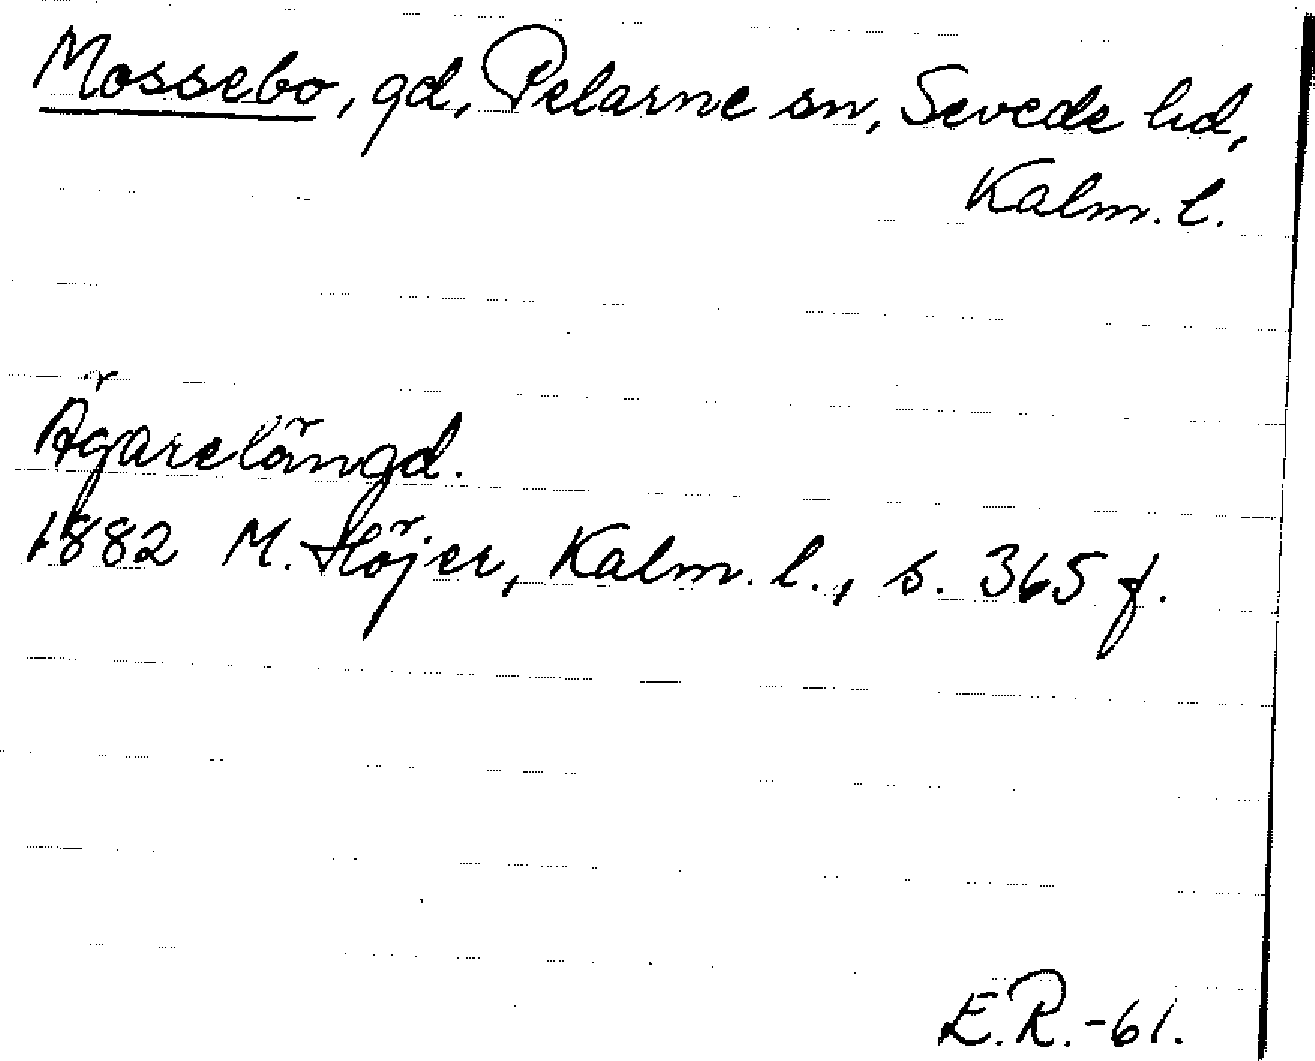 Mossebo, gd, Pelarne sn, Sevede hd,
Kalm. l.
Ägarelängd.
1882 M. Höjer, Kalm. l., s. 365 f.
E.R.-61.